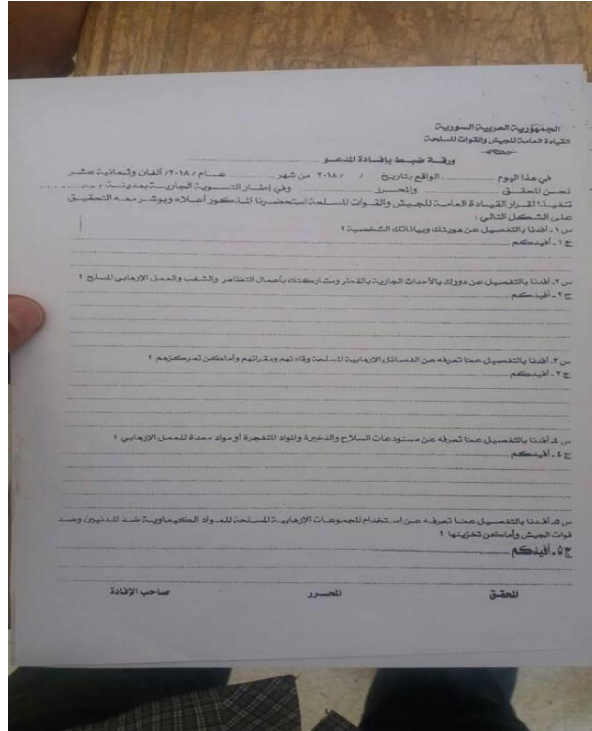 الجمهورية العربية السورية
القيادة العامة للجيش والقوات المسلحة
ورقة ضبط بإفادة المدعو ........................
في هذا اليوم ............ الواقع بتاريخ / / ٢٠١٨ من شهر ............ عام / ٢٠١٨/ ألفان وثمانية عشر
نحن المحقق ............ والمحرر ............ وفي إطار التسوية الجارية بمدينة / ............
تنفيذا لقرار القيادة العامة للجيش والقوات المسلحة استحضرنا المذكور أعلاه وبوشر معه التحقيق
على الشكل التالي :
س ١- أفدنا بالتفصيل عن هويتك وبياناتك الشخصية ؟
ج ١- أفيدكم ............
س ٢- أفدنا بالتفصيل عن دورك بالأحداث الجارية بالقطر ومشاركتك بأعمال التظاهر والشغب والعمل الإرهابي المسلح ؟
ج ٢- أفيدكم ............
س ٣- أفدنا بالتفصيل عما تعرفه عن الفصائل الإرهابية المسلحة وقادتهم ومقراتهم وأماكن تمركزهم ؟
ج ٣- أفيدكم ............
س ٤- أفدنا بالتفصيل عما تعرفه عن مستودعات السلاح والذخيرة والمواد المتفجرة أو مواد معدة للعمل الإرهابي ؟
ج ٤- أفيدكم ............
س ٥- أفدنا بالتفصيل عما تعرفه عن استخدام المجموعات الإرهابية المسلحة للمواد الكيماوية ضد المدنيين وضد
قوات الجيش وأماكن تخزينها ؟
ج ٥- أفيدكم ............
المحقق المحرر صاحب الإفادة